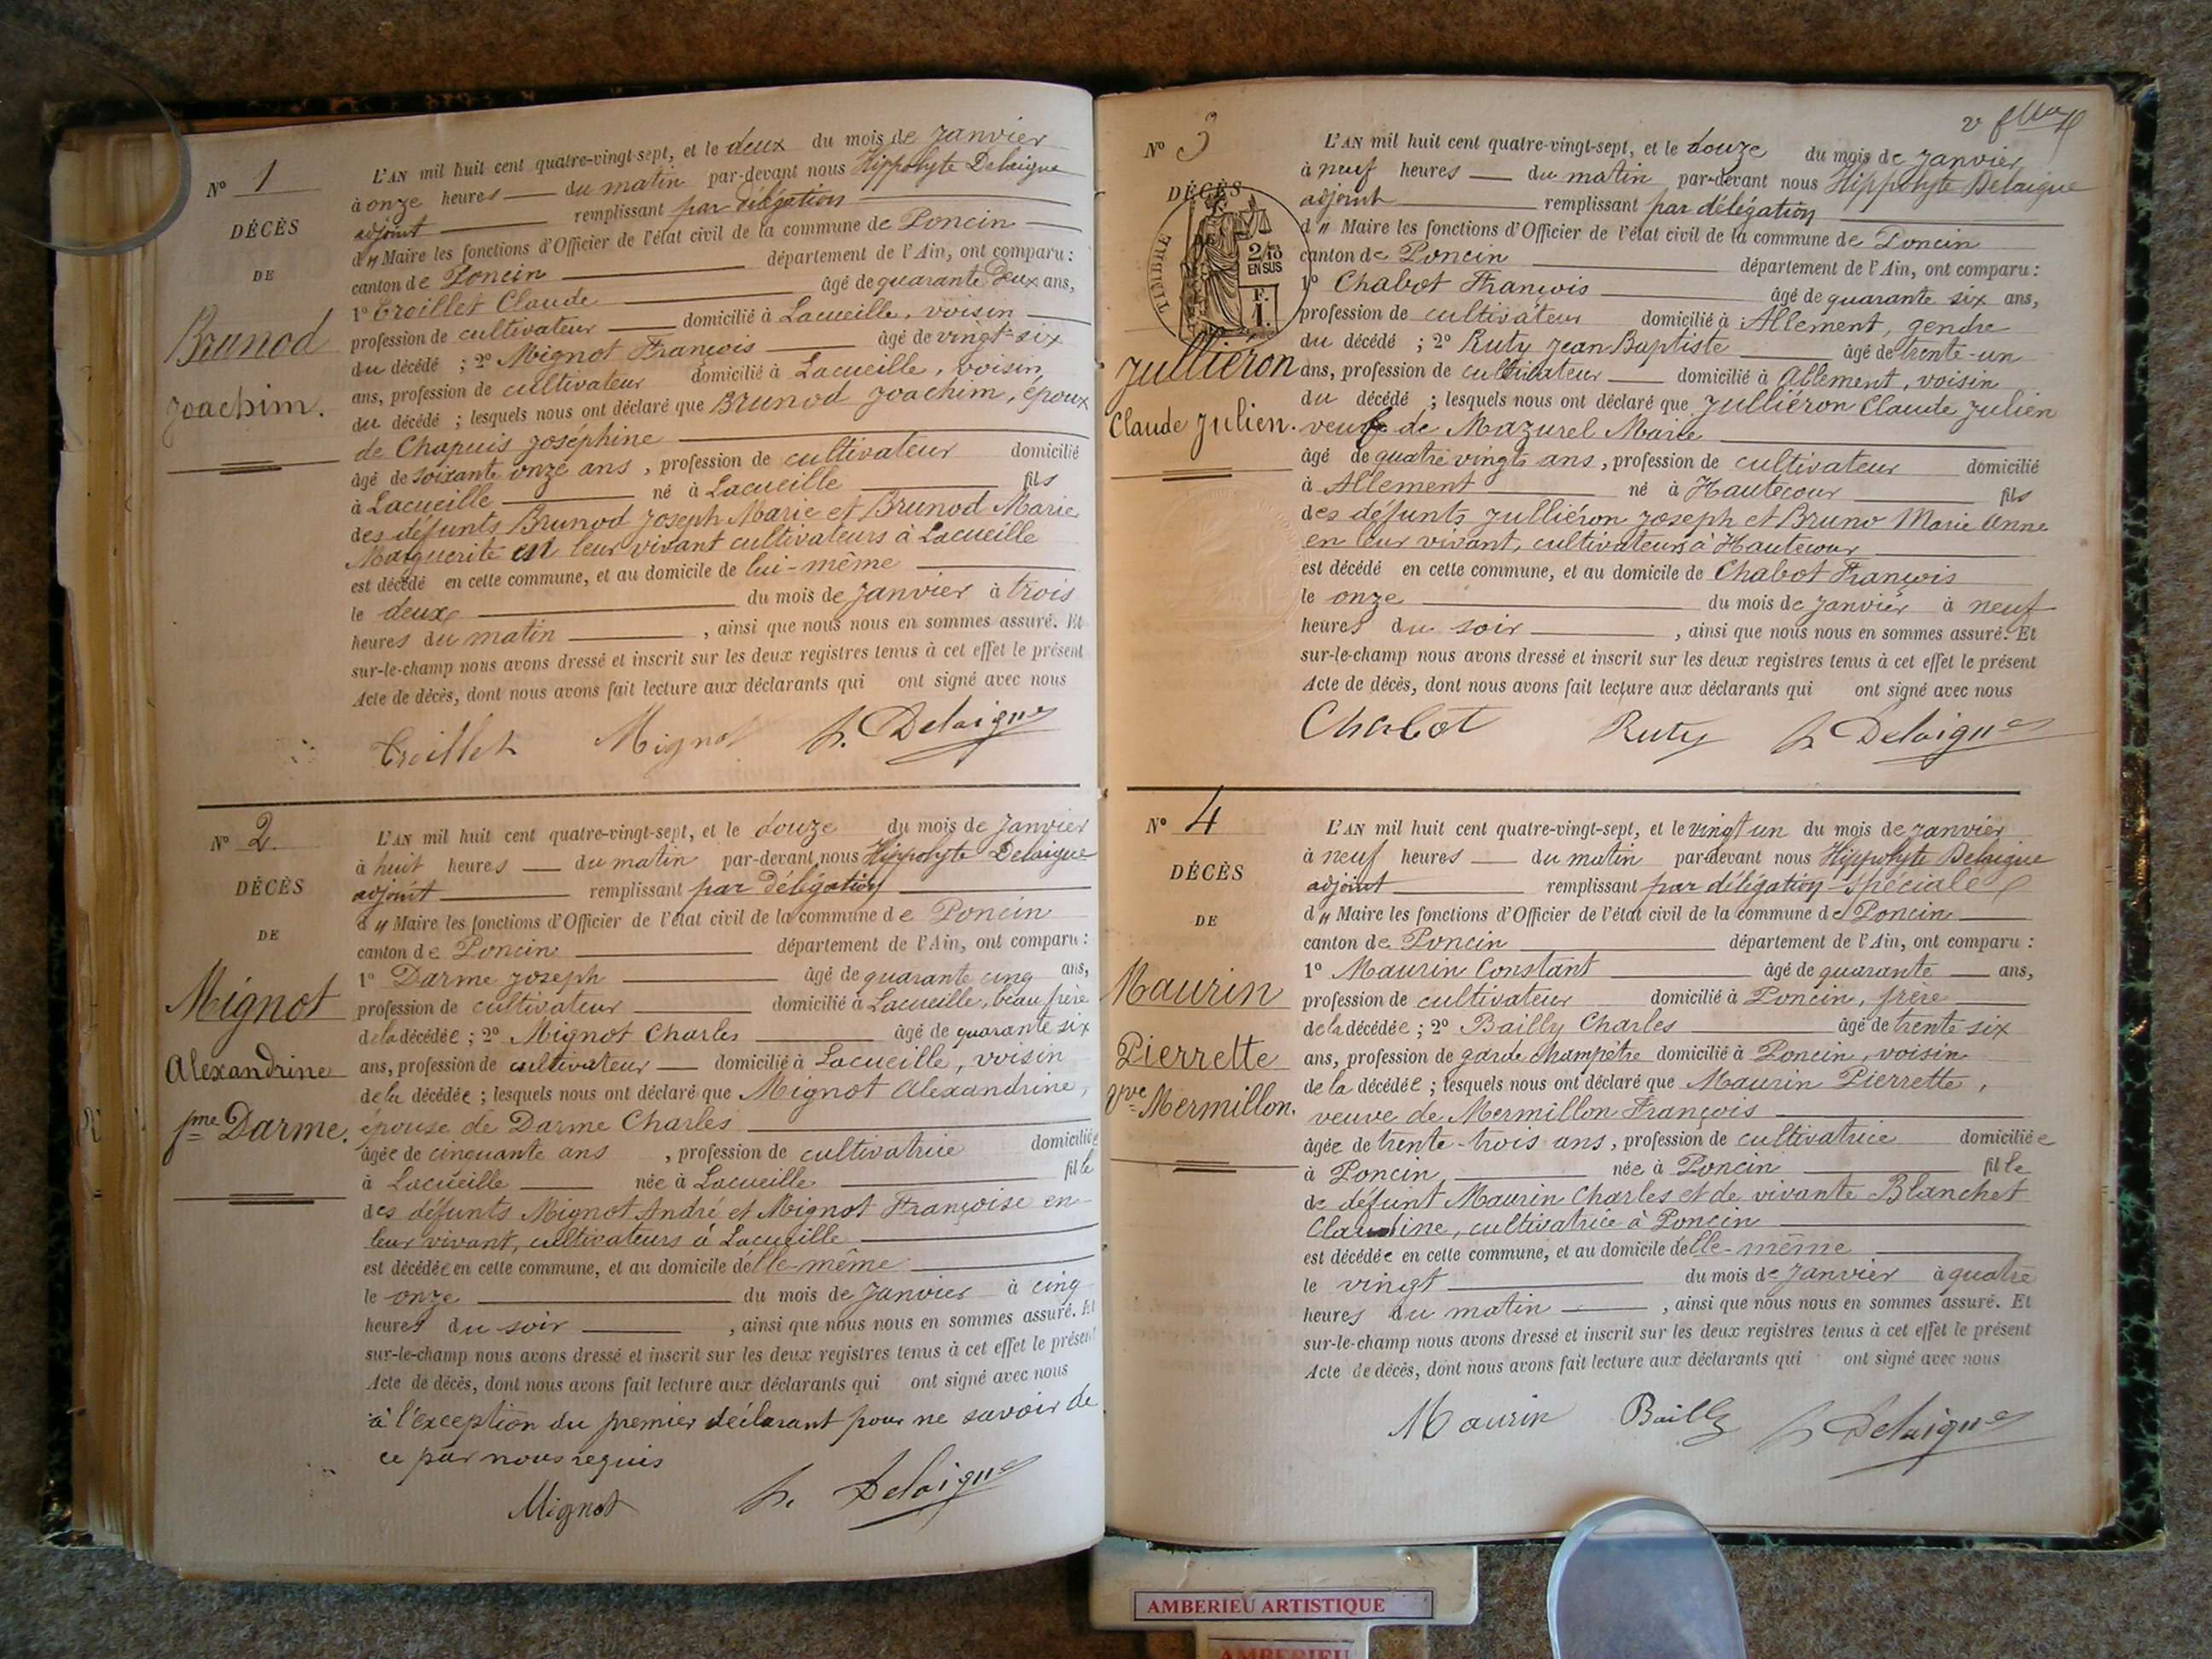 N° 1
DÉCÈS
DE
Brunod
Joachim.
L'AN mil huit cent quatre-vingt-sept, et le deux du mois de Janvier
à onze heures du matin par-devant nous Hippolyte Delaigue
adjoint remplissant par délégation
d u Maire les fonctions d'Officier de l'état civil de la commune de Poncin
canton de Poncin département de l'Ain, ont comparu :
1° Troillet Claude âgé de quarante deux ans,
profession de cultivateur domicilié à Lacueille, voisin
du décédé ; 2° Mignot François âgé de vingt-six
ans, profession de cultivateur domicilié à Lacueille, voisin
du décédé ; lesquels nous ont déclaré que Brunod Joachim, époux
de Chapuis Joséphine
âgé de soixante onze ans, profession de cultivateur domicilié
à Lacueille né à Lacueille fils
des défunts Brunod Joseph Marie et Brunod Marie
Marguerite en leur vivant cultivateurs à Lacueille
est décédé en cette commune, et au domicile de lui-même
le deux du mois de Janvier à trois
heures du matin , ainsi que nous nous en sommes assuré. Et
sur-le-champ nous avons dressé et inscrit sur les deux registres tenus à cet effet le présent
Acte de décès, dont nous avons fait lecture aux déclarants qui ont signé avec nous
Troillet Mignot h. Delaigue
N° 2.
DÉCÈS
DE
Mignot
Alexandrine
fme Darme.
L'AN mil huit cent quatre-vingt-sept, et le douze du mois de Janvier
à huit heures du matin par-devant nous Hippolyte Delaigue
adjoint remplissant par délégation
d u Maire les fonctions d'Officier de l'état civil de la commune de Poncin
canton de Poncin département de l'Ain, ont comparu :
1° Darme Joseph âgé de quarante cinq ans,
profession de cultivateur domicilié à Lacueille, beau frère
de la décédée ; 2° Mignot Charles âgé de quarante six
ans, profession de cultivateur domicilié à Lacueille, voisin
de la décédée ; lesquels nous ont déclaré que Mignot Alexandrine,
épouse de Darme Charles
âgée de cinquante ans , profession de cultivatrice domiciliée
à Lacueille née à Lacueille fille
des défunts Mignot André et Mignot Françoise en
leur vivant, cultivateurs à Lacueille
est décédée en cette commune, et au domicile d'elle-même
le onze du mois de Janvier à cinq
heures du soir , ainsi que nous nous en sommes assuré. Et
sur-le-champ nous avons dressé et inscrit sur les deux registres tenus à cet effet le présent
Acte de décès, dont nous avons fait lecture aux déclarants qui ont signé avec nous
à l'exception du premier déclarant pour ne savoir de
ce par nous requis
Mignot h. Delaigue
N° 3
DÉCÈS
TIMBRE
2/10
EN SUS
F.
1.
Julliéron
Claude Julien.
L'AN mil huit cent quatre-vingt-sept, et le douze du mois de Janvier
à neuf heures du matin par-devant nous Hippolyte Delaigue
adjoint remplissant par délégation
d u Maire les fonctions d'Officier de l'état civil de la commune de Poncin
canton de Poncin département de l'Ain, ont comparu :
1° Chabot François âgé de quarante six ans,
profession de cultivateur domicilié à Allement, gendre
du décédé ; 2° Ruty Jean Baptiste âgé de trente-un
ans, profession de cultivateur domicilié à Allement, voisin
du décédé ; lesquels nous ont déclaré que Julliéron Claude Julien
veuf de Mazurel Marie
âgé de quatre vingts ans, profession de cultivateur domicilié
à Allement né à Hautecour fils
des défunts Julliéron Joseph et Bruno Marie Anne
en leur vivant, cultivateurs à Hautecour
est décédé en cette commune, et au domicile de Chabot François
le onze du mois de Janvier à neuf
heures du soir , ainsi que nous nous en sommes assuré. Et
sur-le-champ nous avons dressé et inscrit sur les deux registres tenus à cet effet le présent
Acte de décès, dont nous avons fait lecture aux déclarants qui ont signé avec nous
Chabot Ruty h Delaigue
N° 4
DÉCÈS
DE
Maurin
Pierrette
Vve Mermillon.
L'AN mil huit cent quatre-vingt-sept, et le vingt un du mois de Janvier
à neuf heures du matin par-devant nous Hippolyte Delaigue
adjoint remplissant par délégation spéciale
d u Maire les fonctions d'Officier de l'état civil de la commune de Poncin
canton de Poncin département de l'Ain, ont comparu :
1° Maurin Constant âgé de quarante ans,
profession de cultivateur domicilié à Poncin, frère
de la décédée ; 2° Bailly Charles âgé de trente six
ans, profession de garde champêtre domicilié à Poncin, voisin
de la décédée ; lesquels nous ont déclaré que Maurin Pierrette,
veuve de Mermillon François
âgée de trente-trois ans, profession de cultivatrice domiciliée
à Poncin née à Poncin fille
de défunt Maurin Charles et de vivante Blanchet
Claudine, cultivatrice à Poncin
est décédée en cette commune, et au domicile d'elle-même
le vingt du mois de Janvier à quatre
heures du matin , ainsi que nous nous en sommes assuré. Et
sur-le-champ nous avons dressé et inscrit sur les deux registres tenus à cet effet le présent
Acte de décès, dont nous avons fait lecture aux déclarants qui ont signé avec nous
Maurin Bailly h Delaigue
AMBERIEU ARTISTIQUE
AMBERIEU